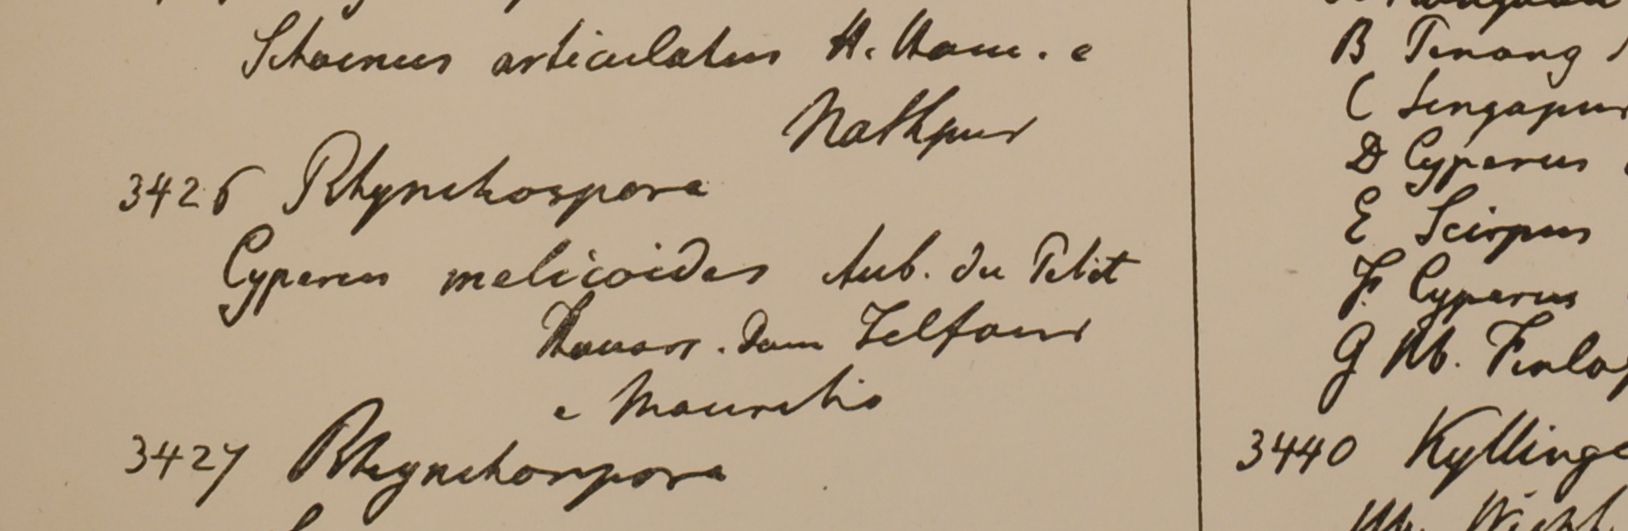 Schoenus articulatus H. Ham. e
Nathpur
3426 Rhynchospora
Cyperus melicoides Aub. du Petit
Thouars. Dom Telfour
e Mauritio
3427 Rhynchospora
B Penang
C Singapur
D Cyperus
E Scirpus
F. Cyperus
G Hb. Finla
3440 Kyllinga